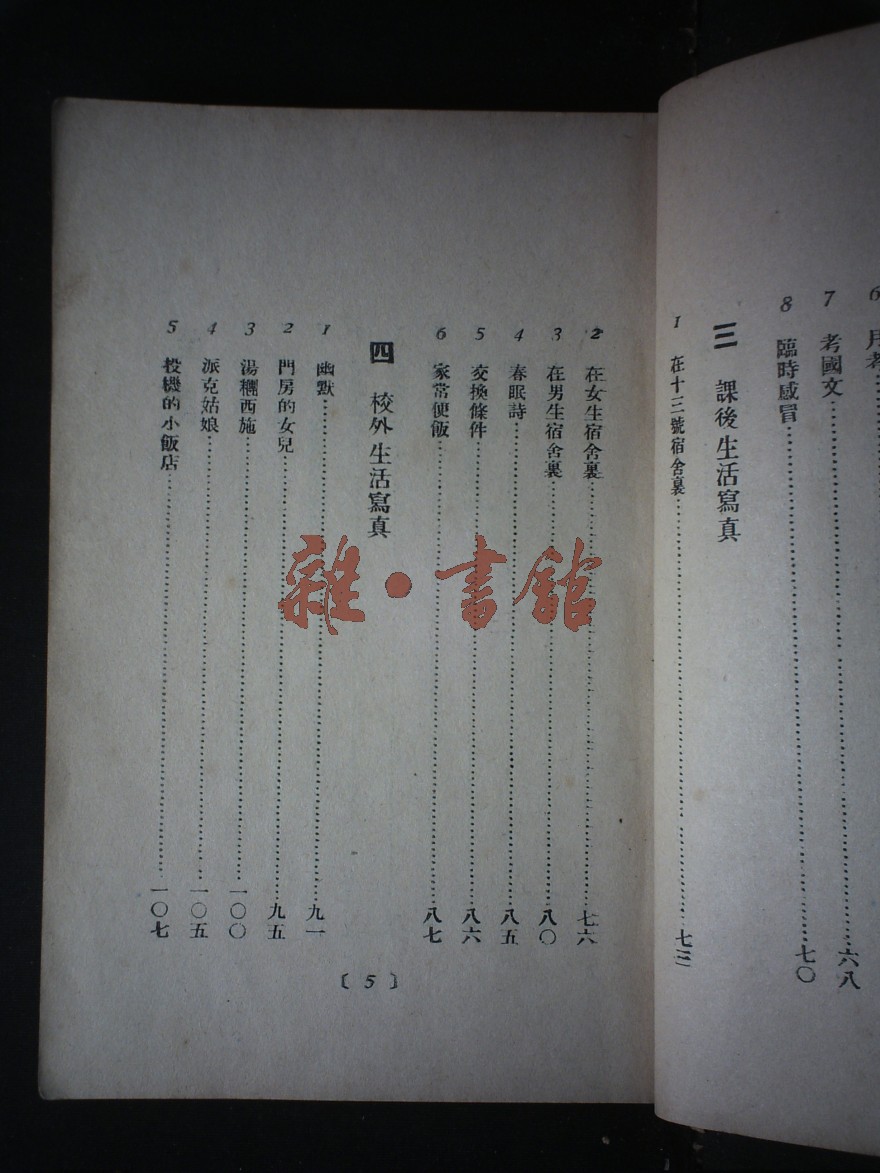 6 月考
7 考國文……六八
8 臨時感冒……七〇
三 課後生活寫真
1 在十三號宿舍裏……七三
2 在女生宿舍裏……七六
3 在男生宿舍裏……八〇
4 春眠詩……八五
5 交換條件……八六
6 家常便飯……八七
四 校外生活寫真
1 幽默……九一
2 門房的女兒……九五
3 湯糰西施……一〇〇
4 派克姑娘……一〇五
5 投機的小飯店……一〇七
〔5〕
雜·書館